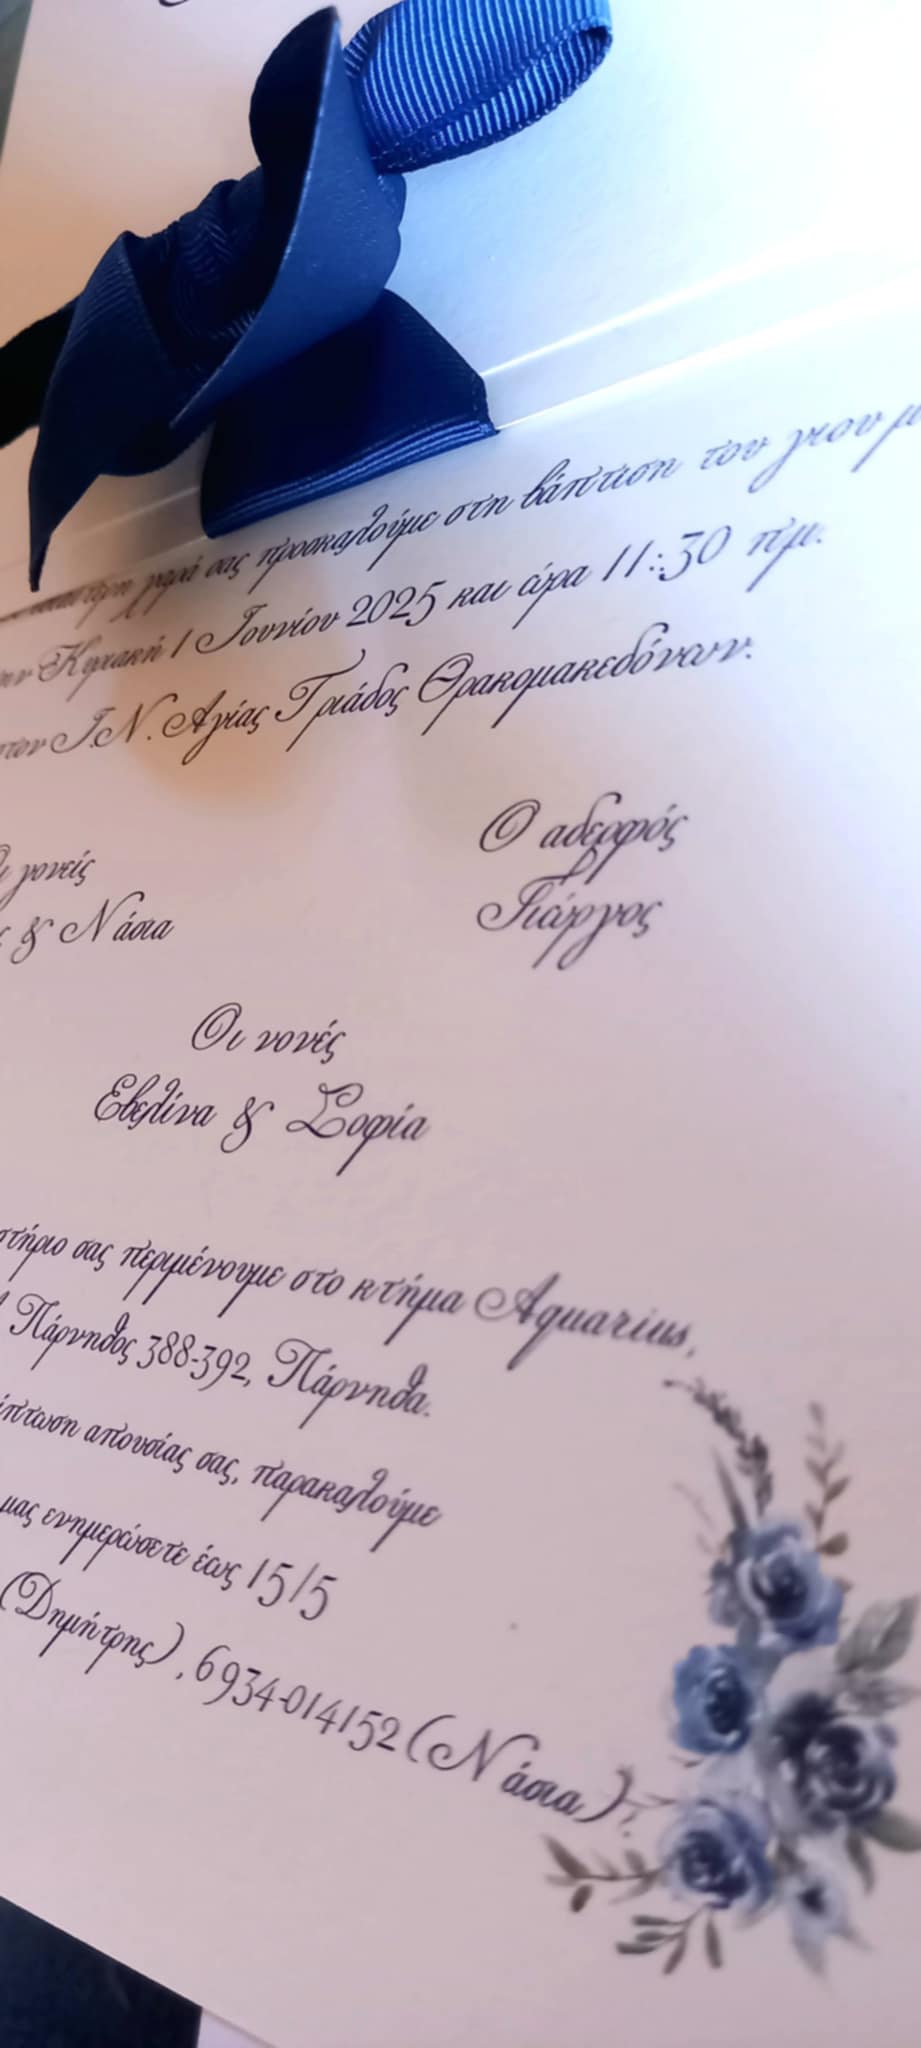 χαρά σας προσκαλούμε στη βάπτιση του γιου
Κυριακή 1 Ιουνίου 2025 και ώρα 11:30 πμ.
στον Ι.Ν. Αγίας Τριάδος Θρακομακεδόνων.
Οι γονείς
& Νάσια
Ο αδερφός
Γιώργος
Οι νονές
Εβελίνα & Σοφία
σας περιμένουμε στο κτήμα Aquarius,
Πάρνηθος 388-392, Πάρνηθα.
απουσίας σας, παρακαλούμε
μας ενημερώσετε έως 15/5
(Δημήτρης), 6934-014152 (Νάσια).